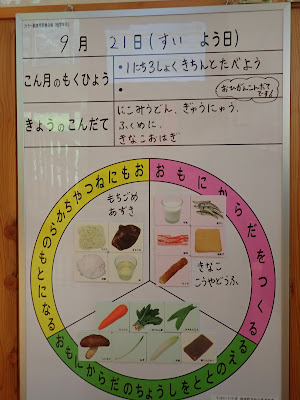 9月 21日(すい よう日)
こん月のもくひょう
・1にち3しょくきちんとたべよう
・
おひがんこんだて
です!
きょうのこんだて
にこみうどん、ぎゅうにゅう、
ふくめに、
きなこおはぎ
おもにねつやちからのもとになる
おもにからだをつくる
おもにからだのちょうしをととのえる
もちごめ
あずき
きなこ
こうやどうふ